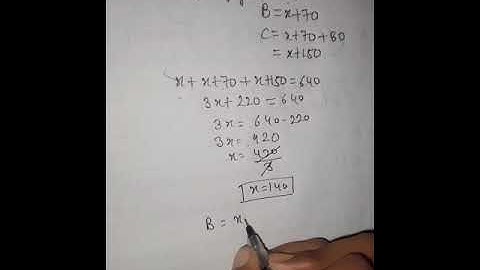 B = x+70
C = x+70+80
= x+150
x + x+70 + x+150 = 640
3x + 220 = 640
3x = 640-220
3x = 420
x = 420/3
x = 140
B = x